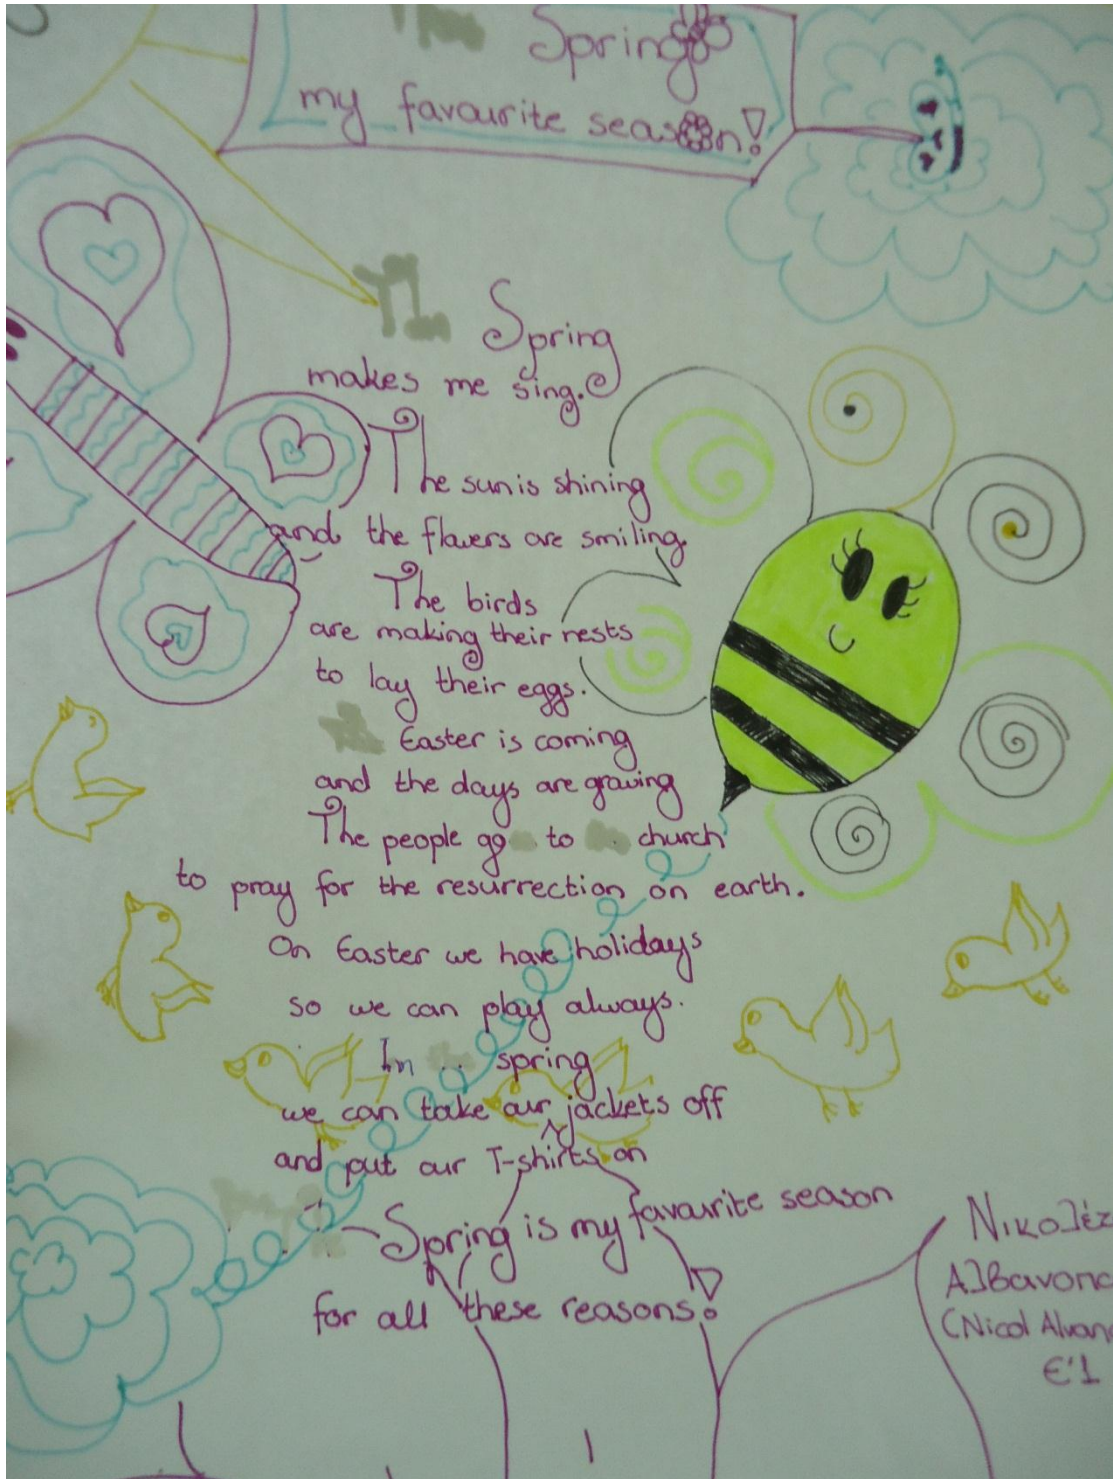 Spring
my favourite season!
Spring
makes me sing.
The sun is shining
and the flowers are smiling.
The birds
are making their nests
to lay their eggs.
Easter is coming
and the days are growing
The people go to church
to pray for the resurrection on earth.
On Easter we have holidays
so we can play always.
In spring
we can take our jackets off
and put our T-shirts on
Spring is my favourite season
for all these reasons!
(Nicol
Ε'1